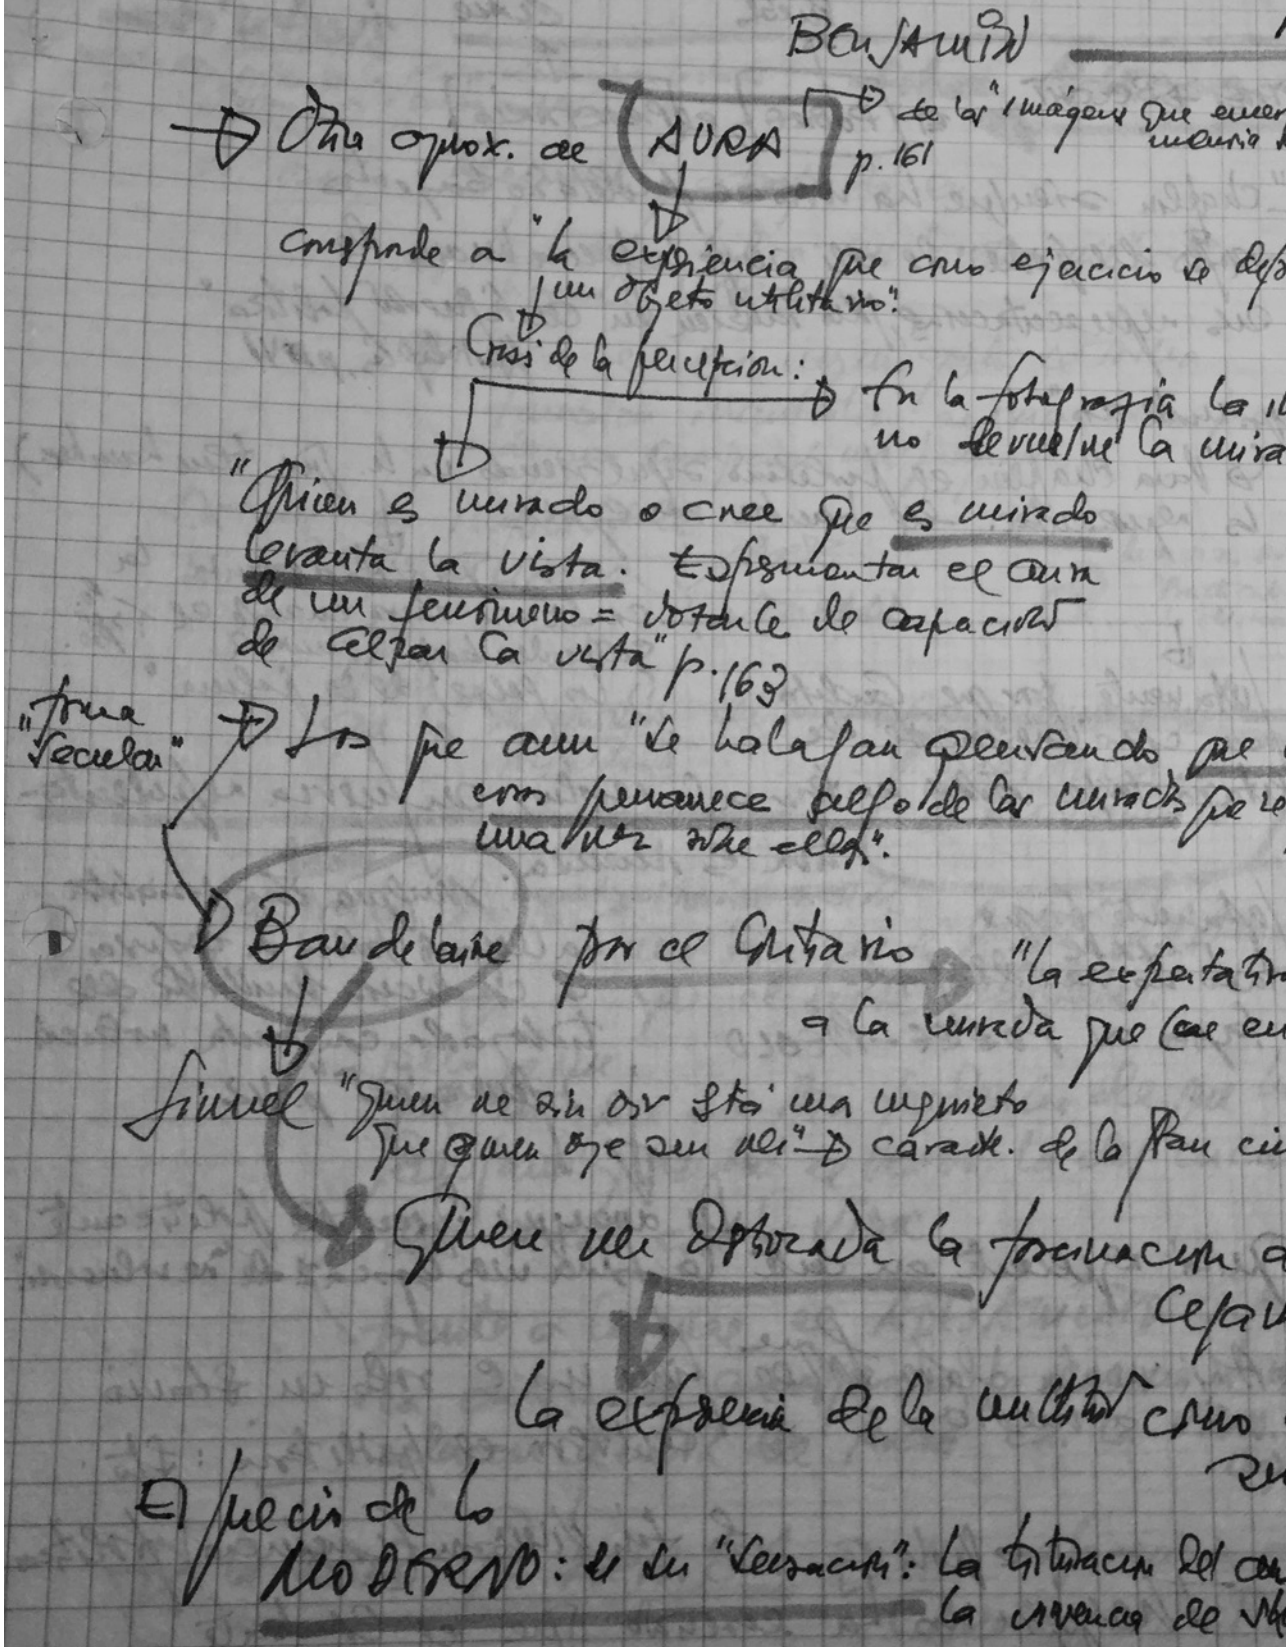 BENJAMIN
→ Otra aprox. de AURA → de las "imágenes que
p. 161
corresponde a "la experiencia que como ejercicio se
un objeto utilitario".
Crisis de la percepción:
→ En la fotografía la
no devuelve la mira
"Quien es mirado o cree que es mirado
levanta la vista. Experimentar el aura
de un fenómeno = dotarle de capacidad
de alzar la vista" p. 163
"forma
secular"
→ Los que aun "se halagan pensando que
cosas permanece algo de las miradas que
una vez sobre ellas".
Baudelaire por el contrario → "la expectativa
a la mirada que cae en
Simmel "Quien ve sin oir está más inquieto
que quien oye sin ver" → caract. de la gran ciu
Quiere ver destrozada la fascinacion
La experiencia de la multitud como
El precio de lo
MODERNO: de su "sensación": La trituracion del
la vivencia de